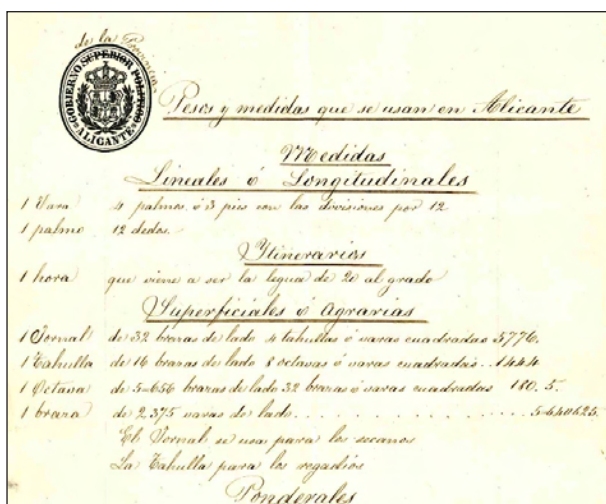 de la Provincia
GOBIERNO SUPERIOR POLITICO
ALICANTE
Pesos y medidas que se usan en Alicante
Medidas
Lineales ó Longitudinales
1 Vara 4 palmos ó 3 pies con las divisiones por 12
1 palmo 12 dedos.
Itinerarios
1 hora que viene a ser la legua de 20 al grado
Superficiales ó Agrarias
1 Jornal de 32 brazas de lado 4 tahullas ó varas cuadradas 5776.
1 Tahulla de 16 brazas de lado 8 octavas ó varas cuadradas .. 1444
1 Octava de 5=656 brazas de lado 32 brazas ó varas cuadradas 180.5.
1 braza de 2.375 varas de lado . . . . . . . . . . . . . . . 5=640625.
El Jornal se usa para los secanos
La Tahulla para los regadios
Ponderales